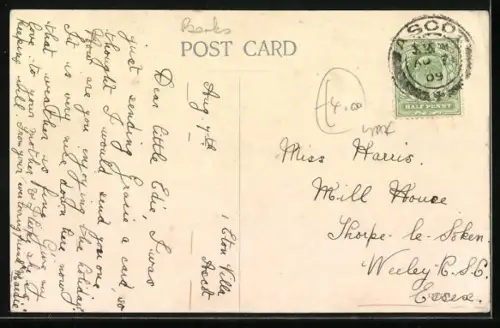 Berks
POST CARD
ASCOT
AU 7
09
HALF PENNY
£4.00
Aug 7th.
1 Eton Villa
Ascot
Dear little Edie, I was
just sending Gracie a card so
thought I would send you one.
How are you enjoying the holiday.
It is very nice down here now
that weather is fine. Give my
love to your mother & I hope she is
keeping well. From your ever loving friend
Miss Harris.
Mill House
Thorpe-le-Soken.
Weeley R.S.O.
Essex.